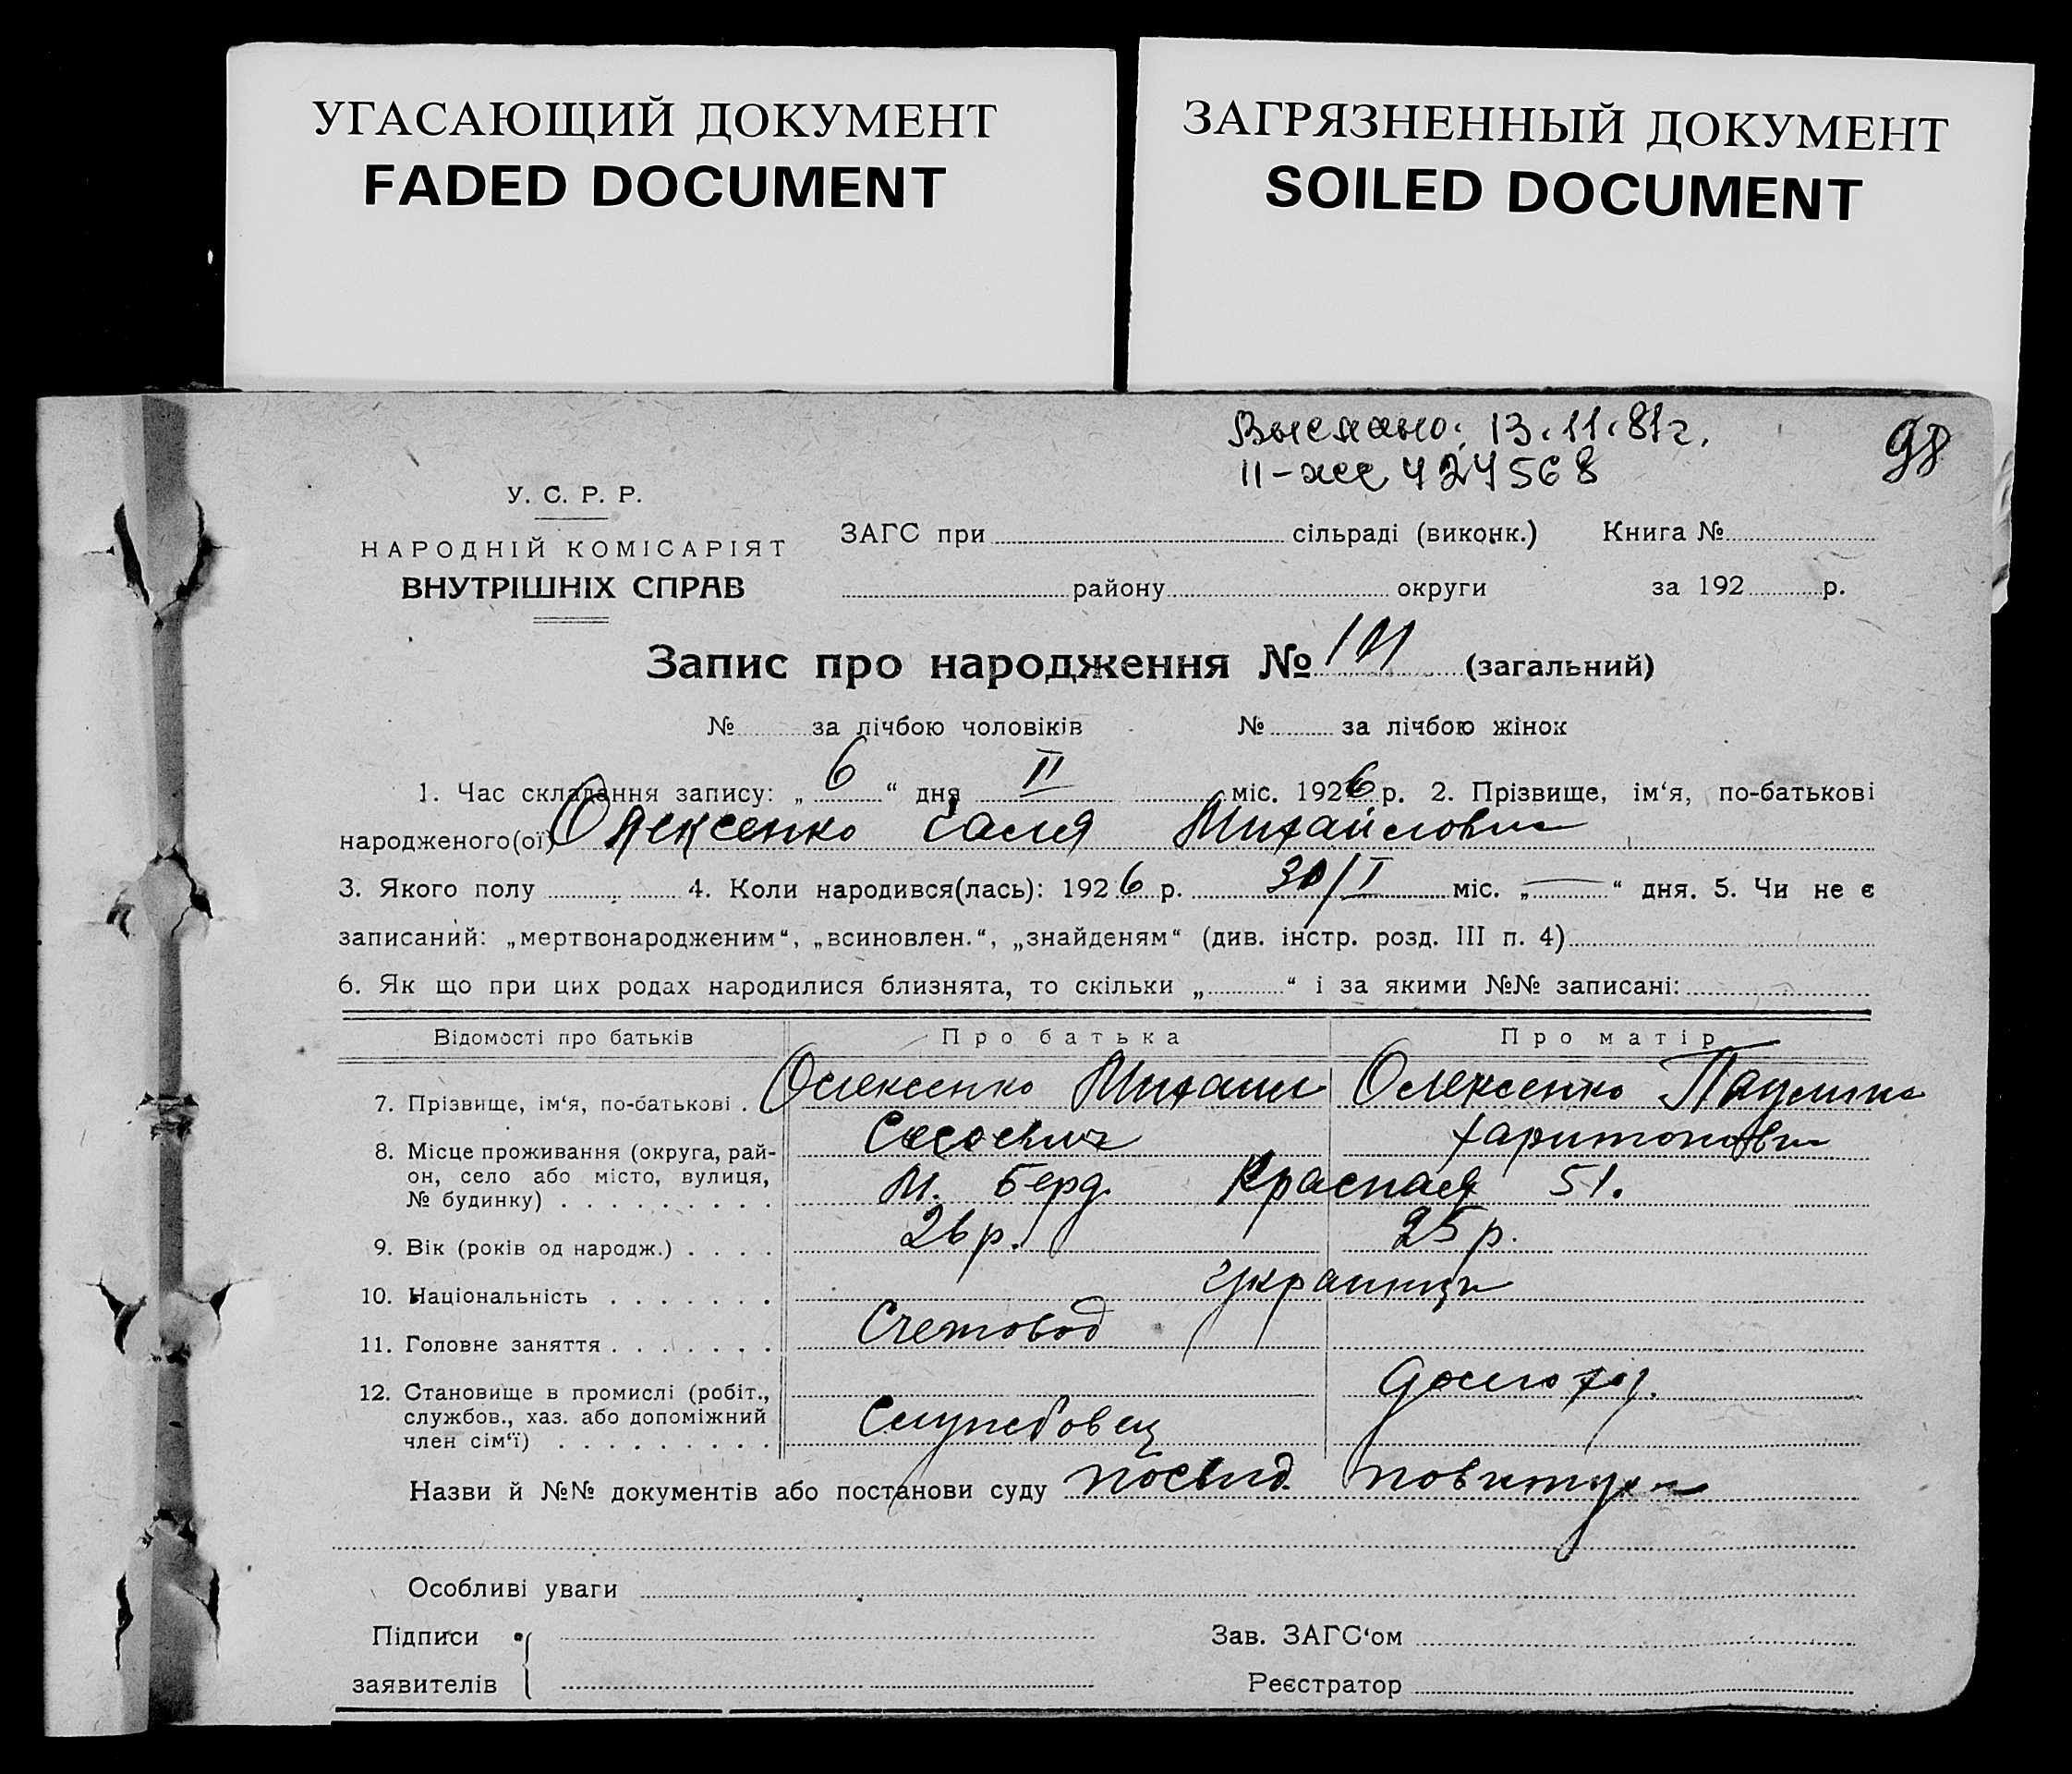 УГАСАЮЩИЙ ДОКУМЕНТ
FADED DOCUMENT
ЗАГРЯЗНЕННЫЙ ДОКУМЕНТ
SOILED DOCUMENT
Выслано: 13.11.81г.
98
II-жс 424568
У. С. Р. Р.
НАРОДНІЙ КОМІСАРІЯТ
ВНУТРІШНІХ СПРАВ
ЗАГС при сільраді (виконк.) Книга №
району округи за 192 р.
Запис про народження № (загальний)
№ за лічбою чоловіків № за лічбою жінок
1. Час складання запису: „ 6 “ дня II міс. 1926 р. 2. Прізвище, ім‘я, по-батькові
народженого(ої) Олексенко Галя Михайловна
3. Якого полу 4. Коли народився(лась): 1926 р. 30/I міс. „ — “ дня. 5. Чи не є
записаний: „мертвонародженим“, „всиновлен.“, „знайденям“ (див. інстр. розд. III п. 4)
6. Як що при цих родах народилися близнята, то скільки „ “ і за якими №№ записані:
Відомості про батьків Про батька Про матір
7. Прізвище, ім‘я, по-батькові . Олексенко Михаил Олексенко Паулина
Харитоновна
8. Місце проживання (округа, рай-
он, село або місто, вулиця, М. Берд. Красная 51.
№ будинку) . . . . . . . . .
9. Вік (років од народж.) . . . . 26 р. 25 р.
10. Національність . . . . . . . українци
11. Головне заняття . . . . . . . Счетовод
12. Становище в промислі (робіт., домохоз.
службов., хаз. або допоміжний Служебовец
член сім‘ї) . . . . . . . . .
Назви й №№ документів або постанови суду посвид. повитухи
Особливі уваги
Підписи Зав. ЗАГС‘ом
заявителів Реєстратор